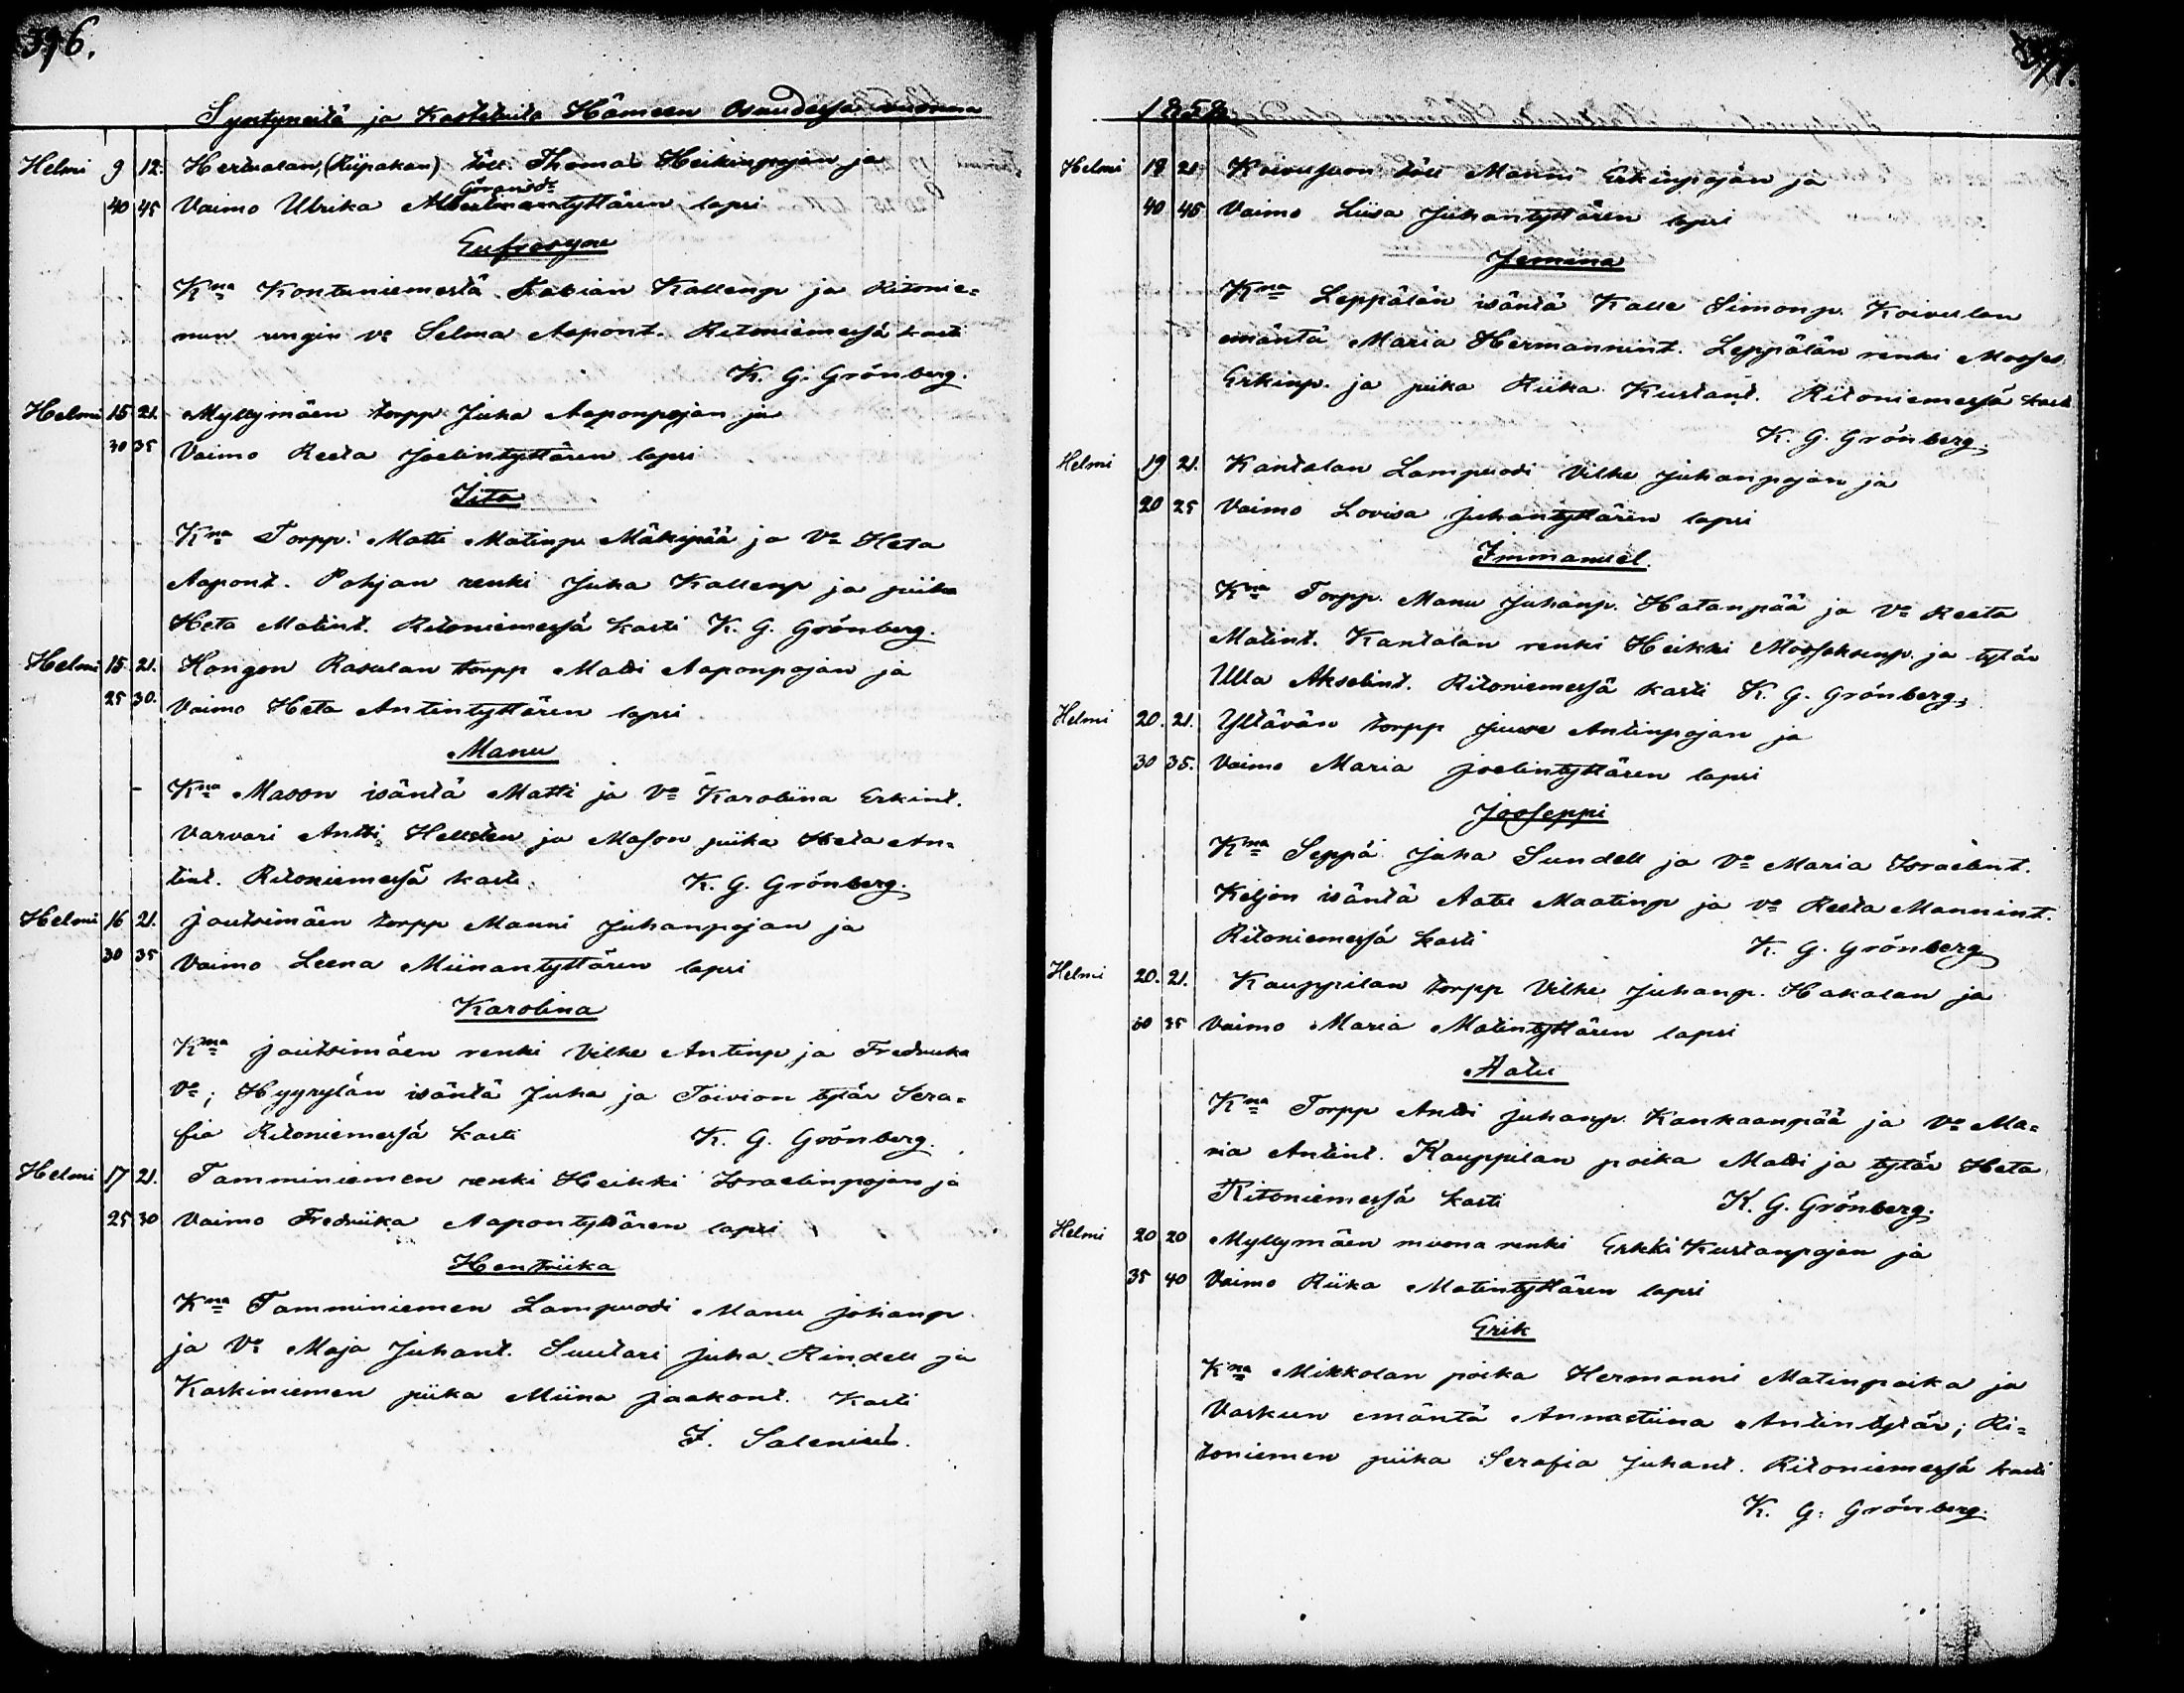 396.
Syntyneitä ja Kastetuita Hämeen Osaudessa vuonna
Helmi 9 12. Hertualan, (Riipakan) töll. Thomas Heikinpojan ja
Göransdr
40 45 Vaimo Ulrika tyttären lapsi
Eufrosyne
Kna Kontuniemestä Fabian Kallenp ja Ritonie=
men rengin vo Selma Aapont. Ritoniemessä kasti
K. G. Grönberg.
Helmi 15 21. Myllymäen torpp Juha Aaponpojan ja
30 35 Vaimo Reeta Joelintyttären lapsi
Iita
Kna Torpp. Matti Matinp. Mäkipää ja Vo Heta
Aapont. Pohjan renki Juha Kallenp ja piika
Heta Matint. Ritoniemessä kasti K. G. Grönberg
Helmi 15. 21. Hongon Rasulan torpp Matti Aaponpojan ja
25 30. Vaimo Heta Antintyttären lapsi
Manu
Kna Mason isäntä Matti ja Vo Karoliina Erkint.
Varvari Antti Hellsten ja Mason piika Heta An=
tint. Ritoniemessä kasti K. G. Grönberg.
Helmi 16 21. Joutsimäen torpp Manni Juhanpojan ja
30 35 Vaimo Leena Miinantyttären lapsi
Karolina
Kna Joutsimäen renki Vilke Antinp ja Fredriika
Vo; Hyyrylän isäntä Juha ja Toivion tytär Sera=
fia Ritoniemessä kasti K. G. Grönberg.
Helmi 17 21. Tamminiemen renki Heikki Israelinpojan ja
25 30 Vaimo Fredriika Aapontyttären lapsi
Hentriika
Kna Tamminiemen Lampuodi Manu Johanp.
ja Vo Maja Juhant. Suutari Juha Rindell ja
Koskiniemen piika Miina Jaakont. Kasti
F. Salenius.
397.
1858.
Helmi 18 21. Koivusuon töll Manni Erkinpojan ja
40 45 Vaimo Liisa Juhantyttären lapsi
Jemina
Kna Leppälän isäntä Kalle Simonp. Koivulan
emäntä Maria Hermannint. Leppälän renki Mooses
Erkinp. ja piika Riika Kustant. Ritoniemessä kasti
K. G. Grönberg.
Helmi 19 21. Kantalan Lampuodi Vilke Juhanpojan ja
20 25 Vaimo Lovisa Juhantyttären lapsi
Immanuel.
Kna Torpp. Manu Juhanp. Hatanpää ja Vo Reeta
Matint. Kantalan renki Heikki Mooseksenp. ja tytär
Ulla Akselint. Ritoniemessä kasti K. G. Grönberg.
Helmi 20. 21. Yltävän torpp Juuse Antinpojan ja
30 35. Vaimo Maria Joelintyttären lapsi
Jooseppi
Kna Seppä Juha Sundell ja Vo Maria Israelint.
Keljon isäntä Aatu Maatinp ja vo Reeta Mannint.
Ritoniemessä kasti K. G. Grönberg
Helmi 20. 21. Kauppilan torpp Vilke Juhanp. Hakalan ja
30 35 Vaimo Maria Matintyttären lapsi
Aatu
Kna Torpp Antti Juhanp. Kankaanpää ja Vo Ma=
ria Antint. Kauppilan poika Matti ja tytär Heta
Ritoniemessä kasti K. G. Grönberg.
Helmi 20 20 Myllymäen muona renki Erkki Kustanpojan ja
35 40 Vaimo Riika Matintyttären lapsi
Erik
Kna Mikkolan poika Hermanni Matinpoika ja
Vaskuun emäntä Annastiina Antintytär; Ri=
toniemen piika Serafia Juhant. Ritoniemessä kasti
K. G. Grönberg.